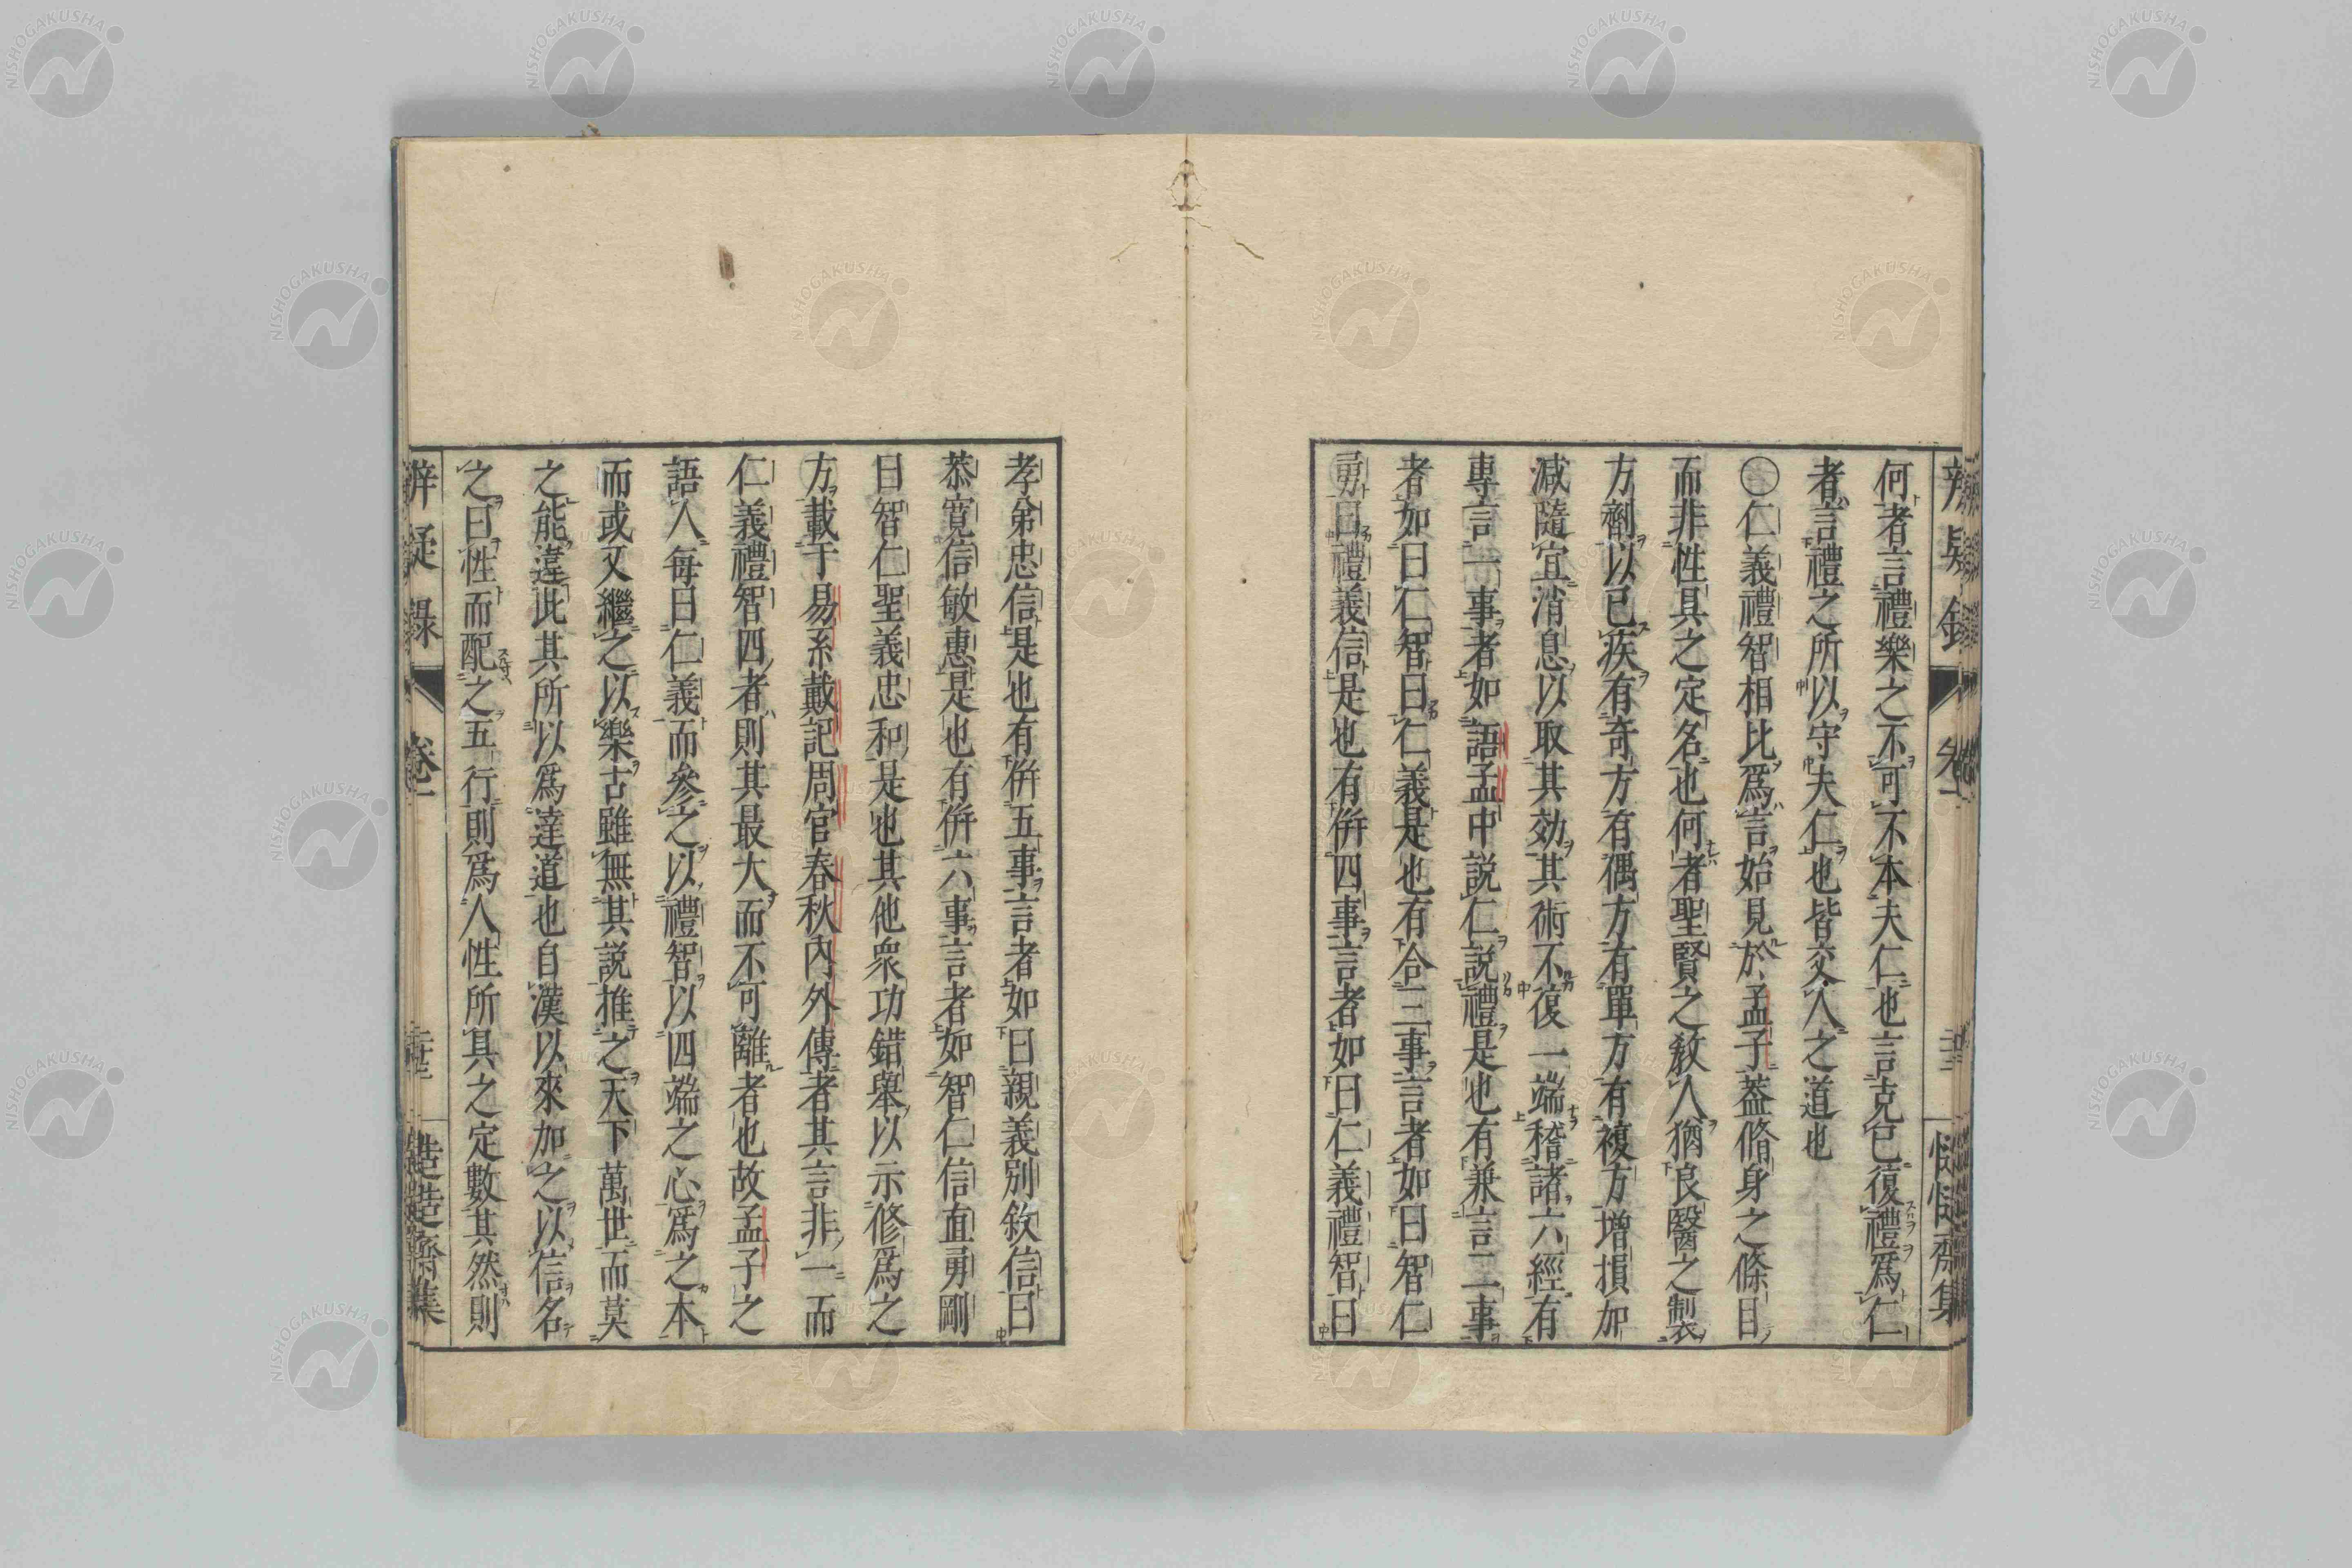 何者言禮樂之不可不本夫仁也言克己復禮爲仁
者言禮之所以守夫仁也皆交人之道也
〇仁義禮智相比爲言始見於孟子蓋脩身之條目
而非性具之定名也何者聖賢之敎人猶良醫之製
方劑以已疾有奇方有偶方有單方有複方增損加
減隨宜消息以取其効其術不復一端稽諸六經有
專言一事者如語孟中説仁説禮是也有兼言二事
者如曰仁智曰仁義是也有合三事言者如曰智仁
勇曰禮義信是也有併四事言者如曰仁義禮智曰
孝弟忠信是也有併五事言者如曰親義別敘信曰
恭寬信敏惠是也有併六事言者如智仁信直勇剛
曰智仁聖義忠和是也其他衆功錯舉以示修爲之
方載于易系戴記周官春秋內外傳者其言非一而
仁義禮智四者則其最大而不可離者也故孟子之
語人每曰仁義而參之以禮智以四端之心爲之本
而或又繼之以樂古雖無其説推之天下萬世而莫
之能違此其所以爲達道也自漢以來加之以信名
之曰性而配之五行則爲人性所具之定數其然則
辨疑錄
卷一
慥慥齋集
NISHOGAKUSHA